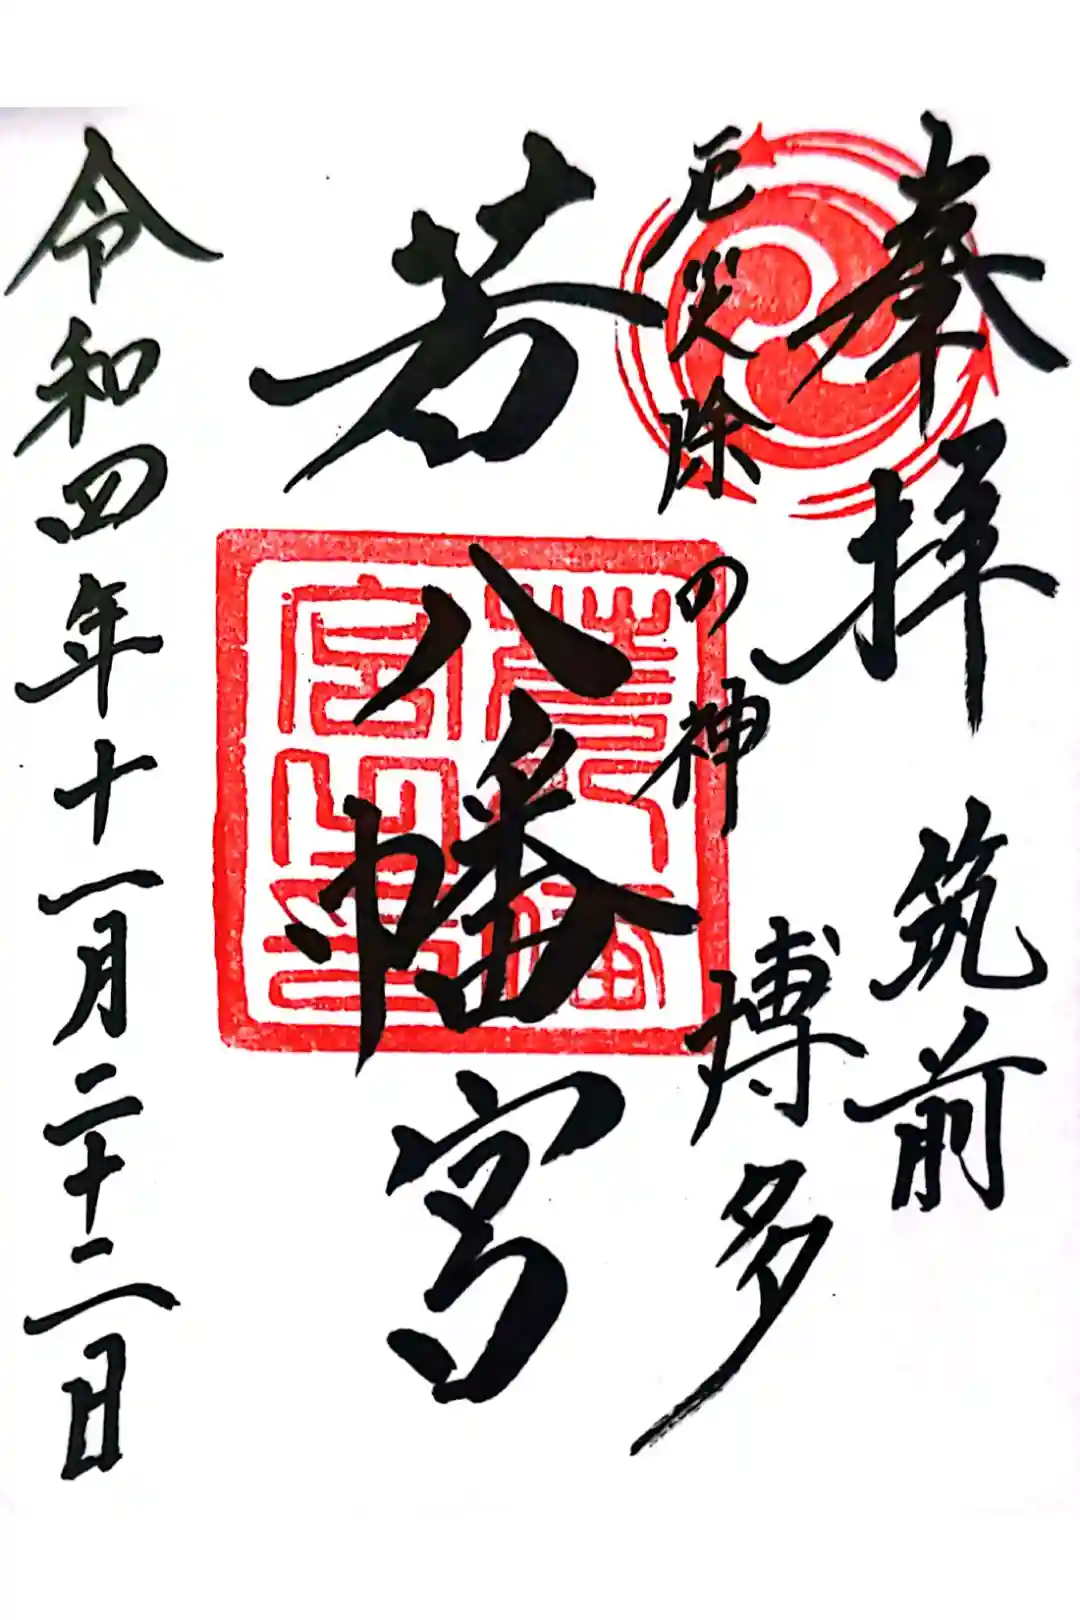 奉拝 筑前
厄災除の神 博多
若八幡宮
令和四年十一月二十二日
若八幡
宮之印